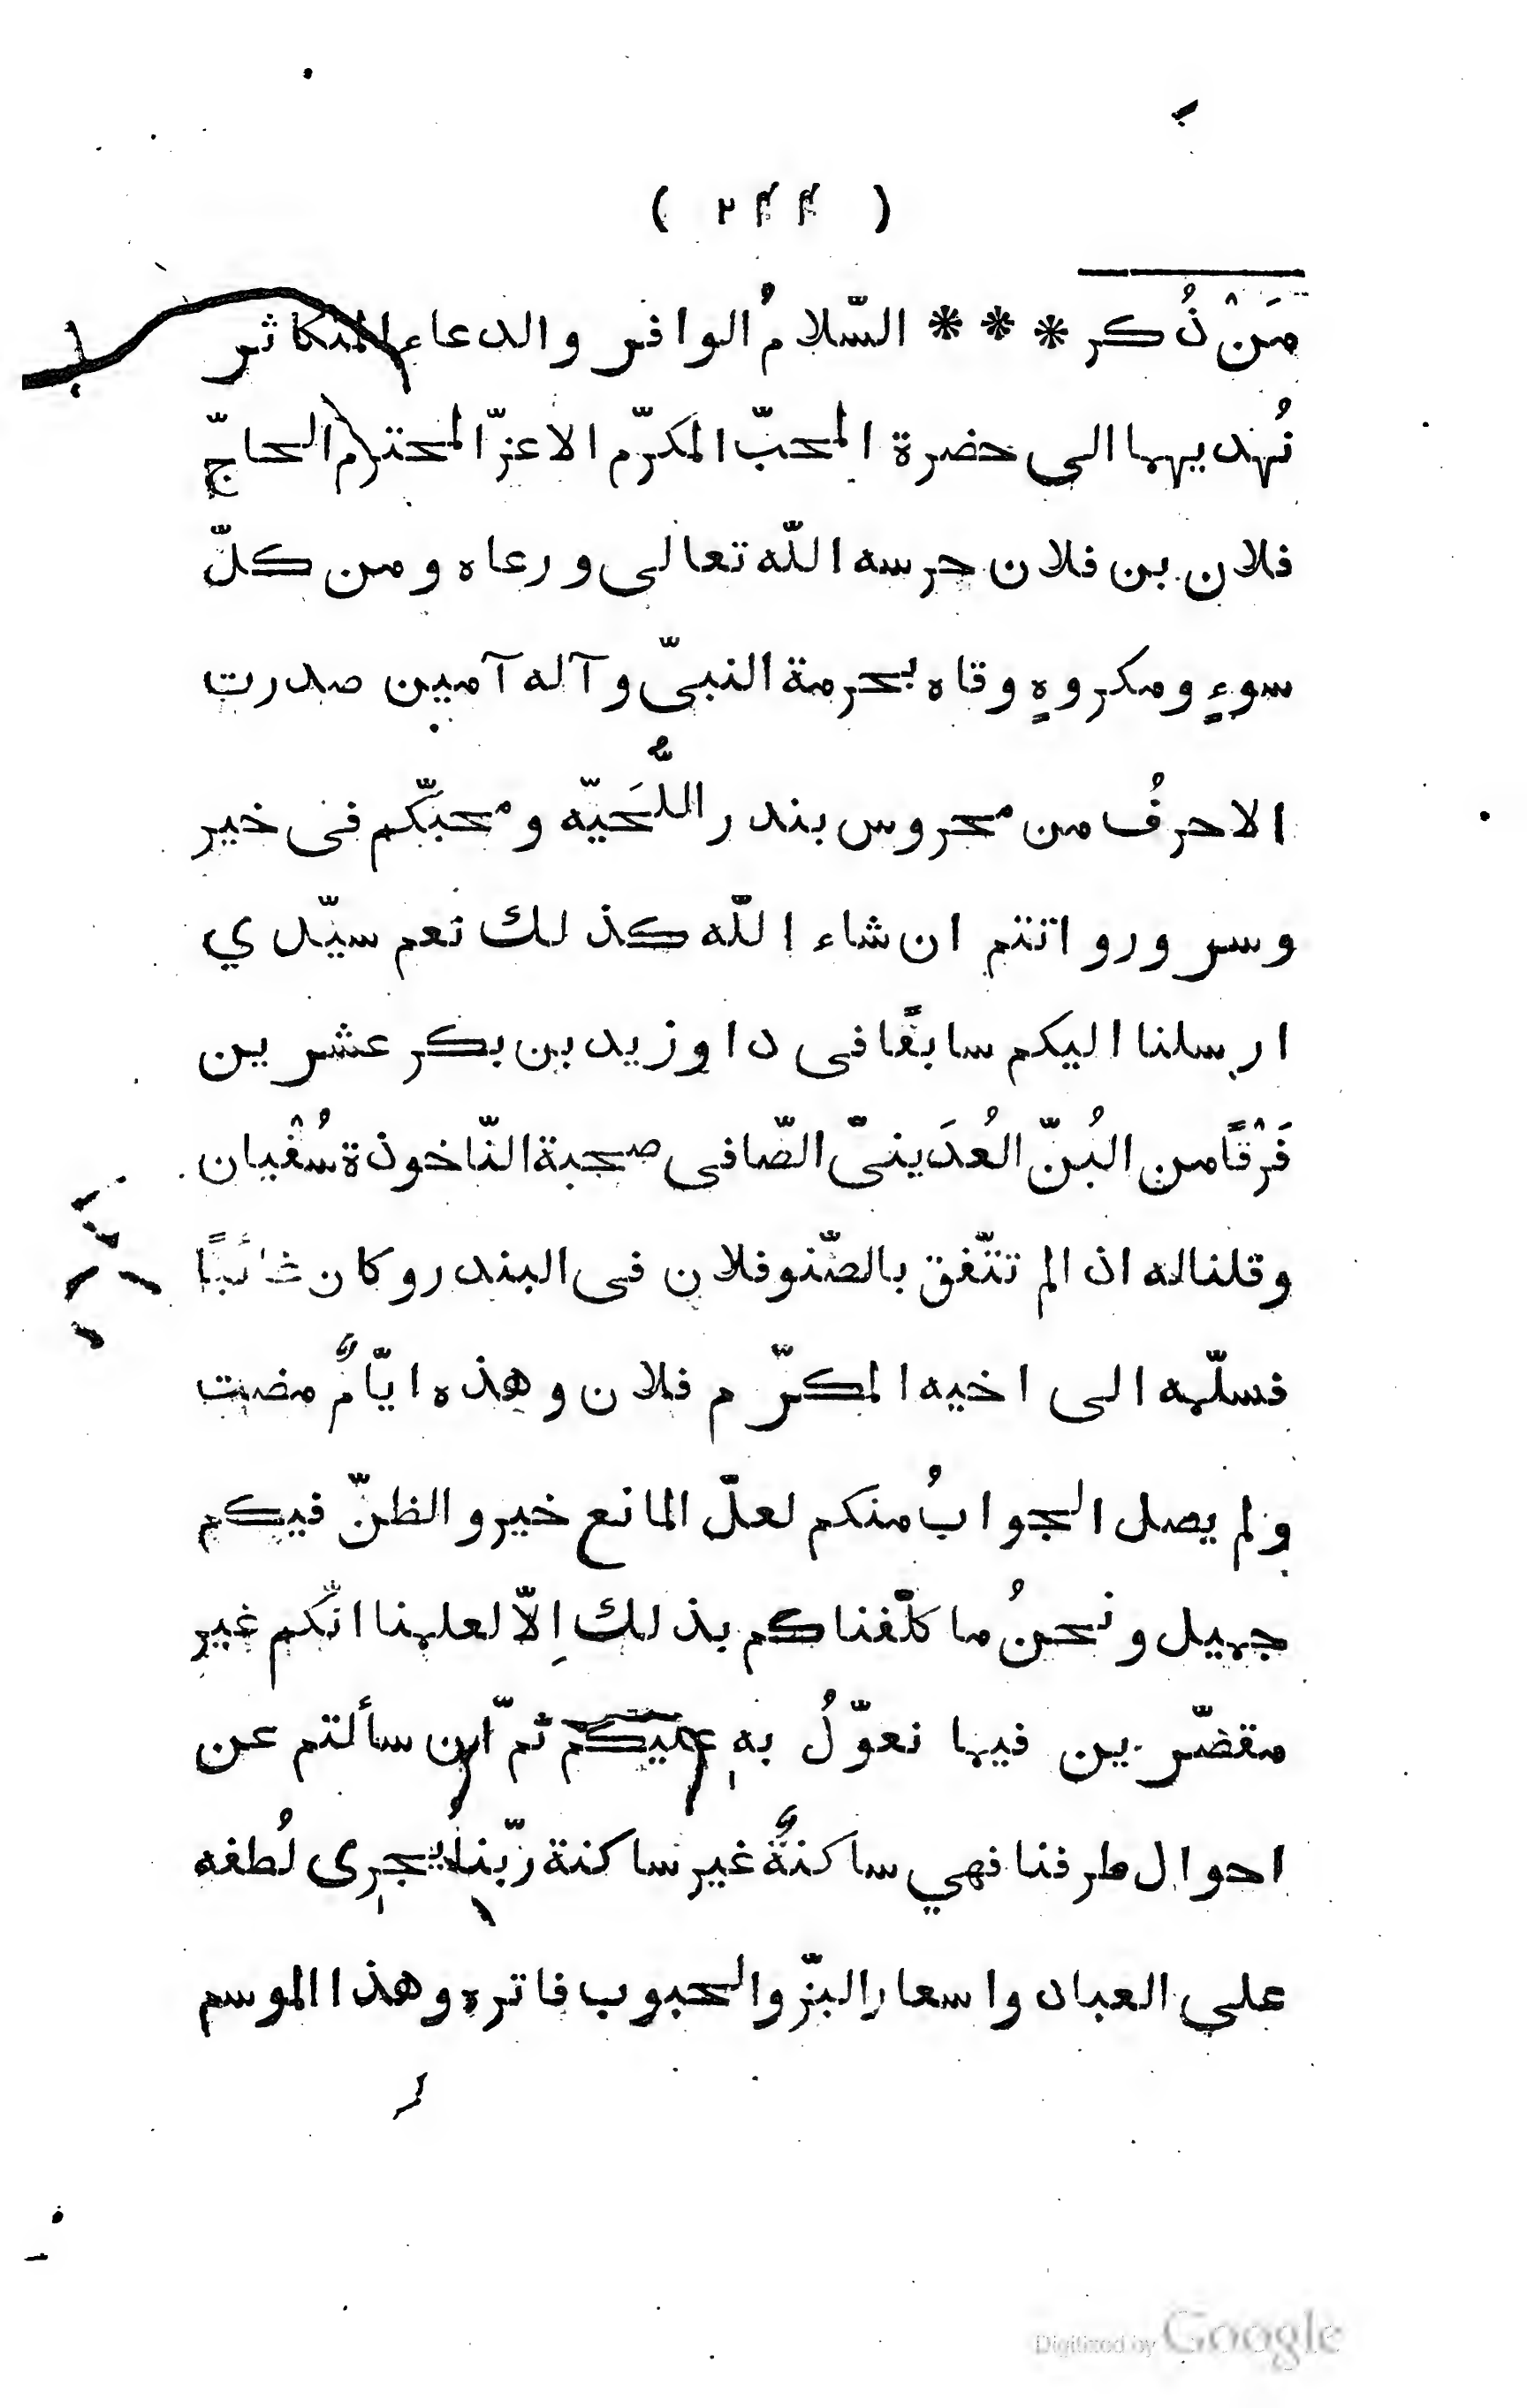 ( ٢٤٤ )
مَنْ ذُكر * * * السّلامُ الوافر والدعاء المتكاثر
نُهديهما الى حضرة المحبّ المكرّم الاعزّ المحترم الحاجّ
فلان بن فلان حرسه اللّه تعالى ورعاه ومن كلّ
سوءٍ ومكروهٍ وقاه بحرمة النبىّ وآله آمين صدرت
الاحرفُ من محروس بندر اللُّحَيّه ومحبّكم فى خير
وسرور وانتم ان شاء اللّه كذلك نعم سيّدي
ارسلنا اليكم سابقًا فى داو زيد بن بكر عشرين
فَرْقًا من البُنّ العُدَينىّ الصّافى صحبة النّاخوذة سُفْيان
وقلنا له اذا لم تتّفق بالصّنو فلان فى البندر وكان غائبًا
فسلّمه الى اخيه المكرّم فلان وهذه ايّامٌ مضت
ولم يصل الجوابُ منكم لعلّ المانع خير والظنّ فيكم
جميل ونحنُ ما كلّفناكم بذلك اِلّا لعلمنا انّكم غير
مقصّرين فيما نعوّلُ به عليكم ثمّ ان سألتم عن
احوال طرفنا فهي ساكنةٌ غير ساكنة ربّنا يجرى لُطفه
على العباد واسعار البزّ والحبوب فاتره وهذا الموسم
Digitized by Google